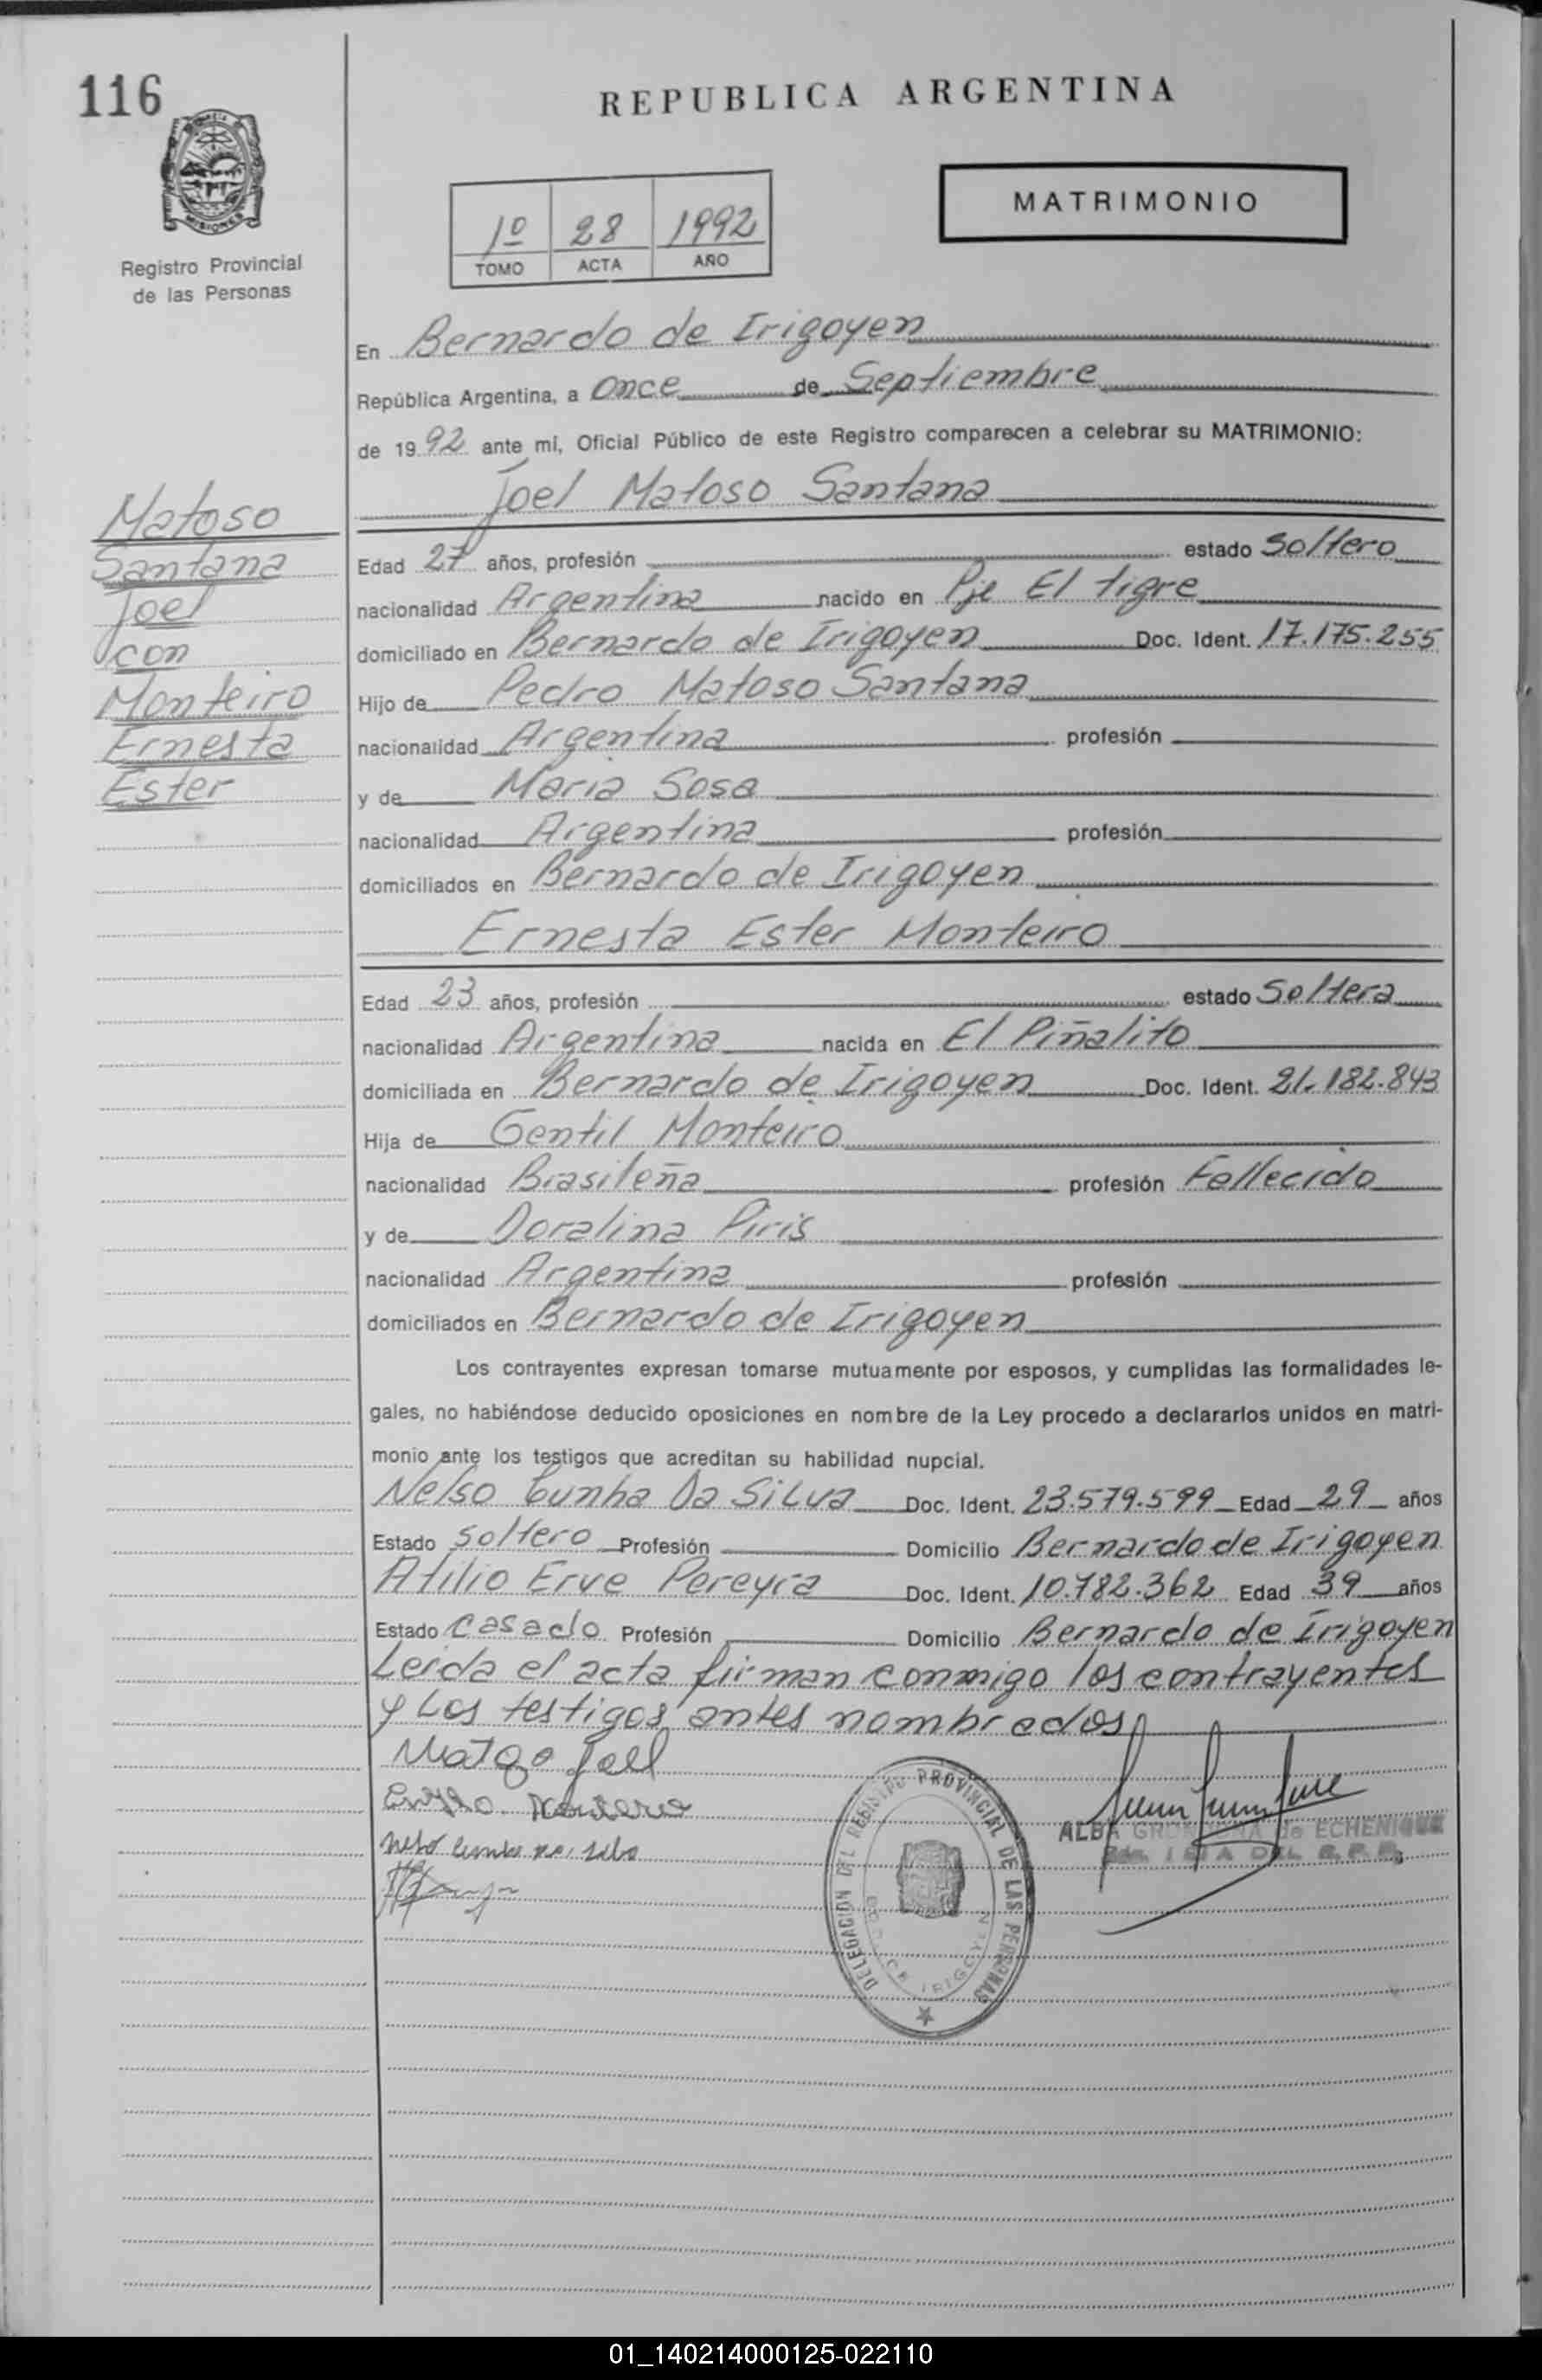 116
REPUBLICA ARGENTINA
MISIONES
Registro Provincial
de las Personas
1º 28 1992
TOMO ACTA AÑO
MATRIMONIO
En Bernardo de Irigoyen
República Argentina, a Once de Septiembre
de 1992 ante mí, Oficial Público de este Registro comparecen a celebrar su MATRIMONIO:
Joel Matoso Santana
Matoso
Santana
Joel
con
Monteiro
Ernesta
Ester
Edad 27 años, profesión estado Soltero
nacionalidad Argentina nacido en Pje El tigre
domiciliado en Bernardo de Irigoyen Doc. Ident. 17.175.255
Hijo de Pedro Matoso Santana
nacionalidad Argentina profesión
y de Maria Sosa
nacionalidad Argentina profesión
domiciliados en Bernardo de Irigoyen
Ernesta Ester Monteiro
Edad 23 años, profesión estado Soltera
nacionalidad Argentina nacida en El Piñalito
domiciliada en Bernardo de Irigoyen Doc. Ident. 21.182.843
Hija de Gentil Monteiro
nacionalidad Brasileña profesión Fallecido
y de Doralina Piris
nacionalidad Argentina profesión
domiciliados en Bernardo de Irigoyen
Los contrayentes expresan tomarse mutuamente por esposos, y cumplidas las formalidades le-
gales, no habiéndose deducido oposiciones en nombre de la Ley procedo a declararlos unidos en matri-
monio ante los testigos que acreditan su habilidad nupcial.
Nelso Cunha Da Silva Doc. Ident. 23.579.599 Edad 29 años
Estado Soltero Profesión Domicilio Bernardo de Irigoyen
Atilio Erve Pereyra Doc. Ident. 10.782.362 Edad 39 años
Estado Casado Profesión Domicilio Bernardo de Irigoyen
Leida el acta firman conmigo los contrayentes
y Los testigos antes nombrados
Joel
DELEGACION DEL REGISTRO PROVINCIAL DE LAS PERSONAS
IRIGOYEN
ALBA de ECHENIQUE
01_140214000125-022110